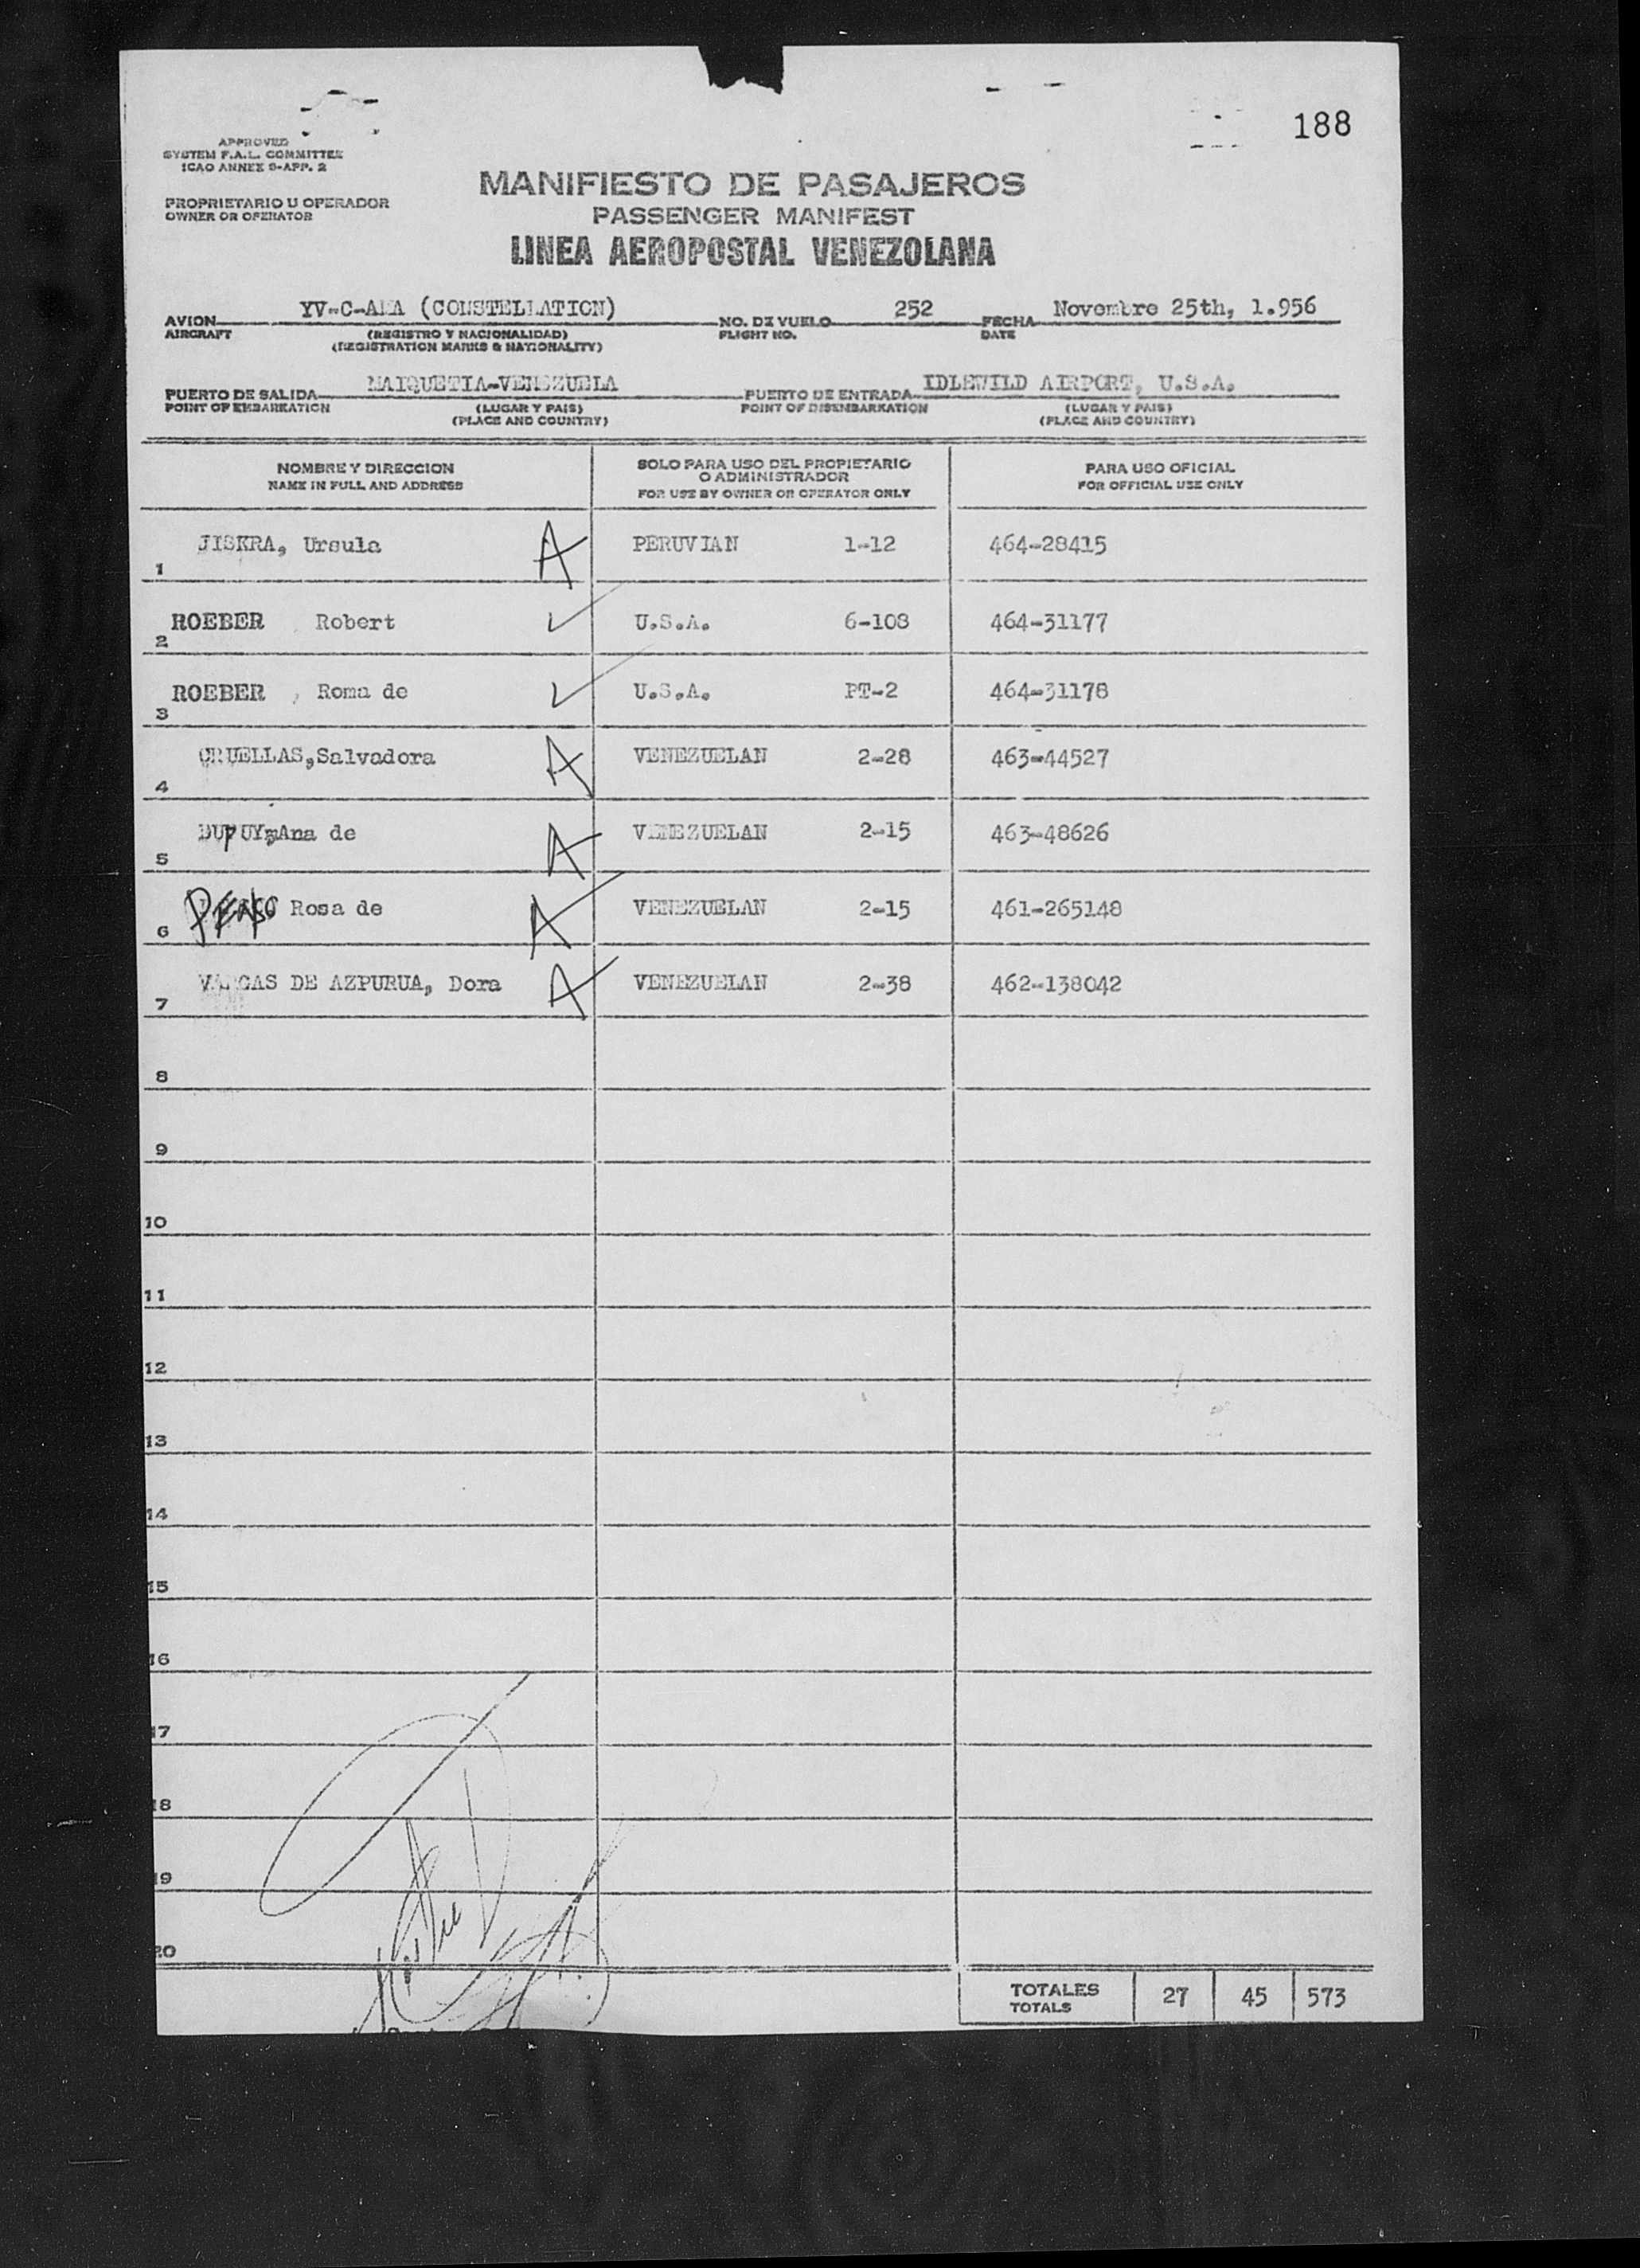 188
APPROVED
SYSTEM F.A.L. COMMITTEE
ICAO ANNEX 9-APP. 2
PROPRIETARIO U OPERADOR
OWNER OR OPERATOR
MANIFIESTO DE PASAJEROS
PASSENGER MANIFEST
LINEA AEROPOSTAL VENEZOLANA
AVION YV-C-AMA (CONSTELLATION) NO. DE VUELO 252 FECHA Novembre 25th, 1.956
AIRCRAFT (REGISTRO Y NACIONALIDAD) FLIGHT NO. DATE
(REGISTRATION MARKS & NATIONALITY)
PUERTO DE SALIDA MAIQUETIA-VENEZUELA PUERTO DE ENTRADA IDLEWILD AIRPORT, U.S.A.
POINT OF EMBARKATION (LUGAR Y PAIS) POINT OF DISEMBARKATION (LUGAR Y PAIS)
(PLACE AND COUNTRY) (PLACE AND COUNTRY)
NOMBRE Y DIRECCION SOLO PARA USO DEL PROPIETARIO O ADMINISTRADOR PARA USO OFICIAL
NAME IN FULL AND ADDRESS FOR USE BY OWNER OR OPERATOR ONLY FOR OFFICIAL USE ONLY
1 JISKRA, Ursula A PERUVIAN 1-12 464-28415
2 ROEBER Robert U.S.A. 6-108 464-31177
3 ROEBER , Roma de U.S.A. PT-2 464-31178
4 CRUELLAS,Salvadora A VENEZUELAN 2-28 463-44527
5 DUPUY,Ana de A VENEZUELAN 2-15 463-48626
6 PENSO Rosa de A VENEZUELAN 2-15 461-265148
7 VARGAS DE AZPURUA, Dora A VENEZUELAN 2-38 462-138042
8
9
10
11
12
13
14
15
16
17
18
19
20
TOTALES 27 45 573
TOTALS